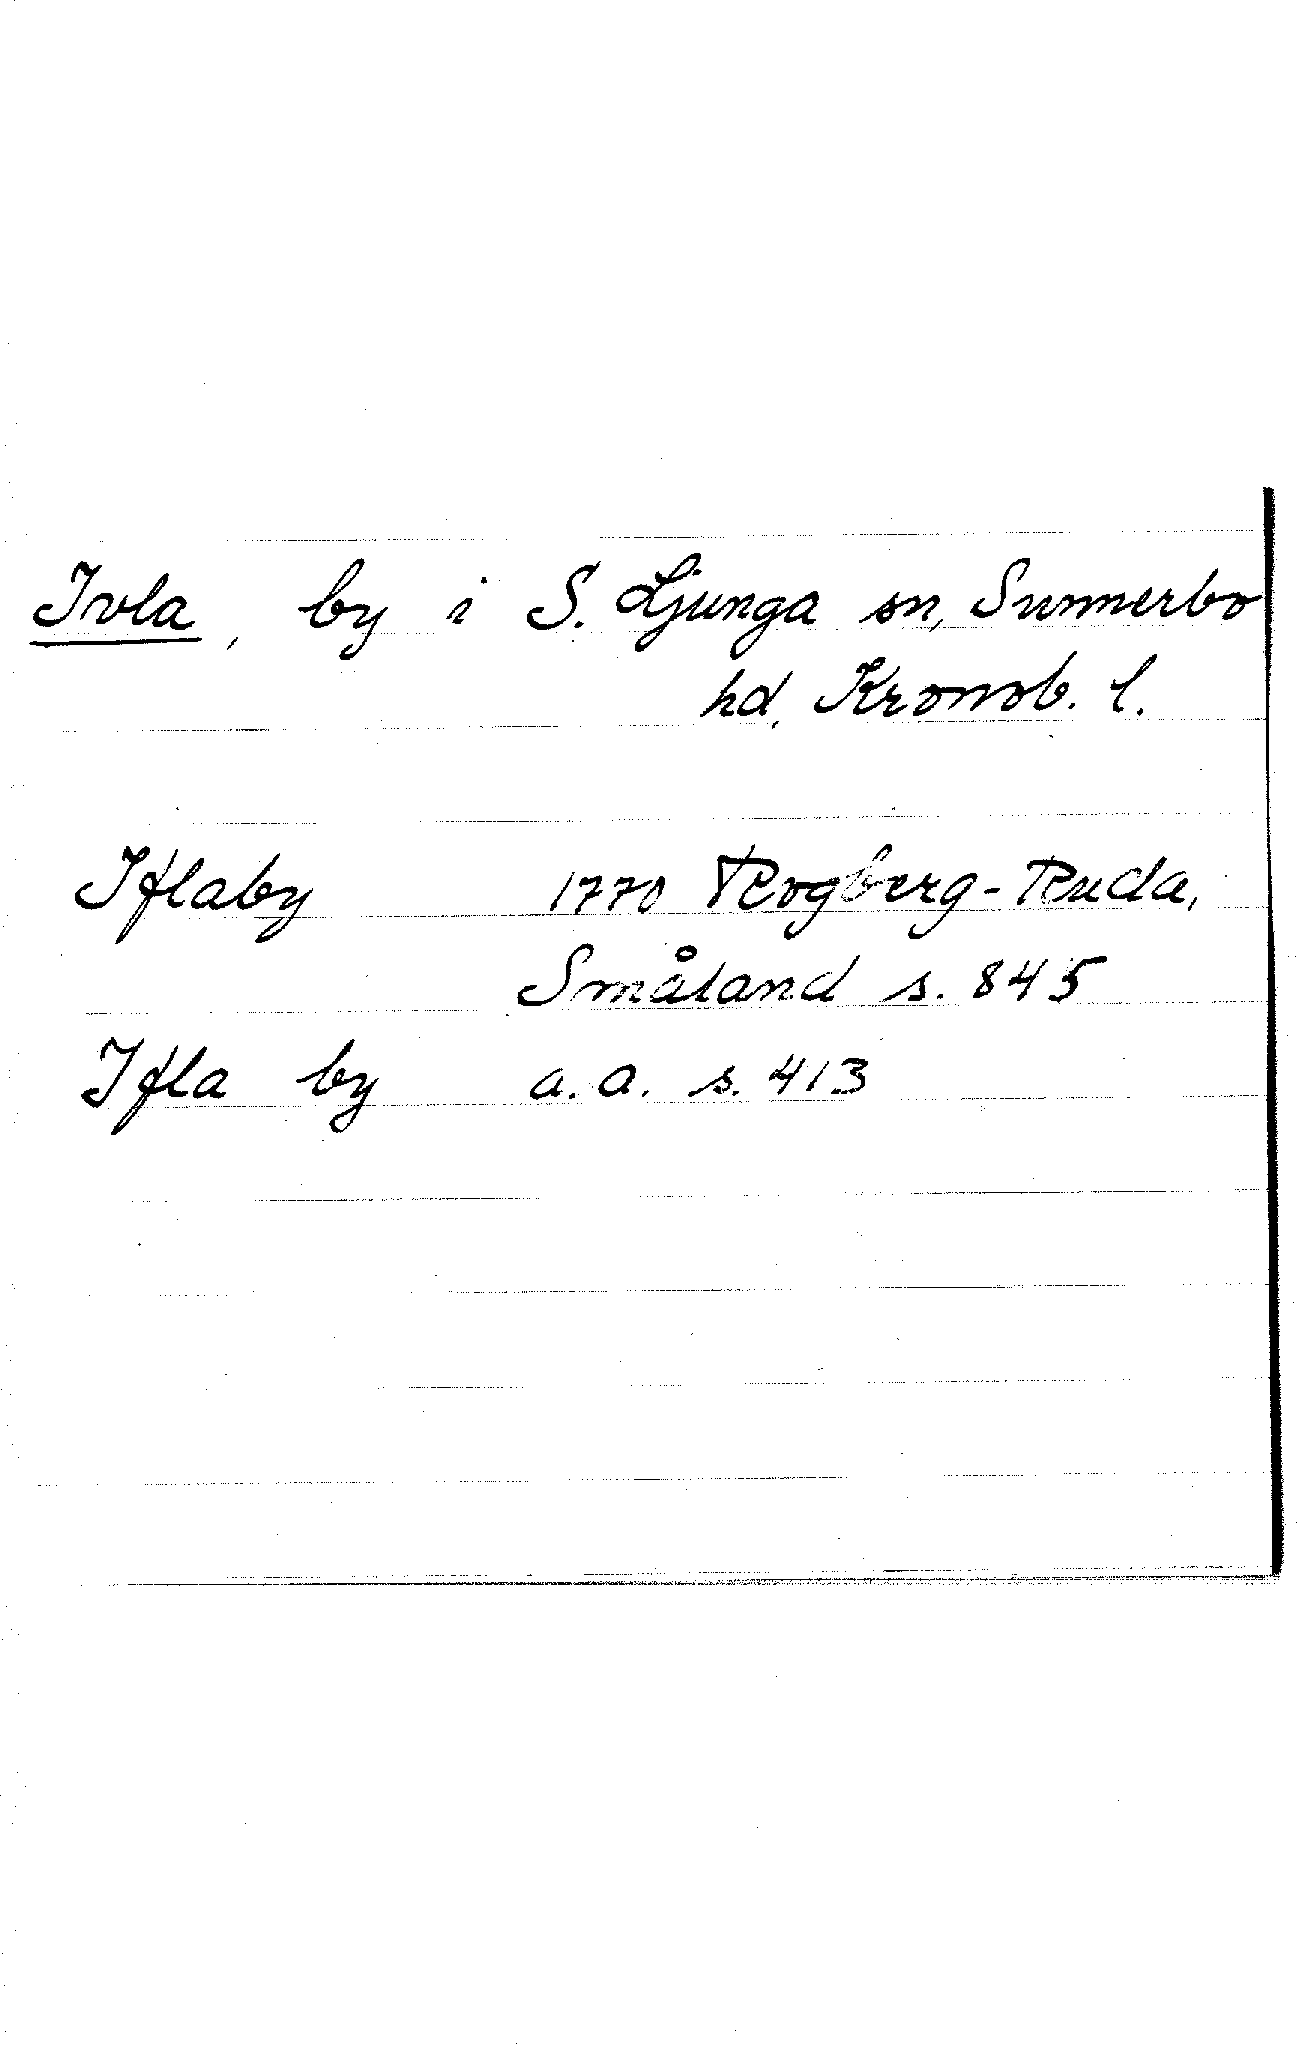 Ivla, by i S. Ljunga sn, Sunnerbo
hd, Kronob. l.
Iflaby 1770 Rogberg-Ruda,
Småland s. 845
Ifla by a. a. s. 413